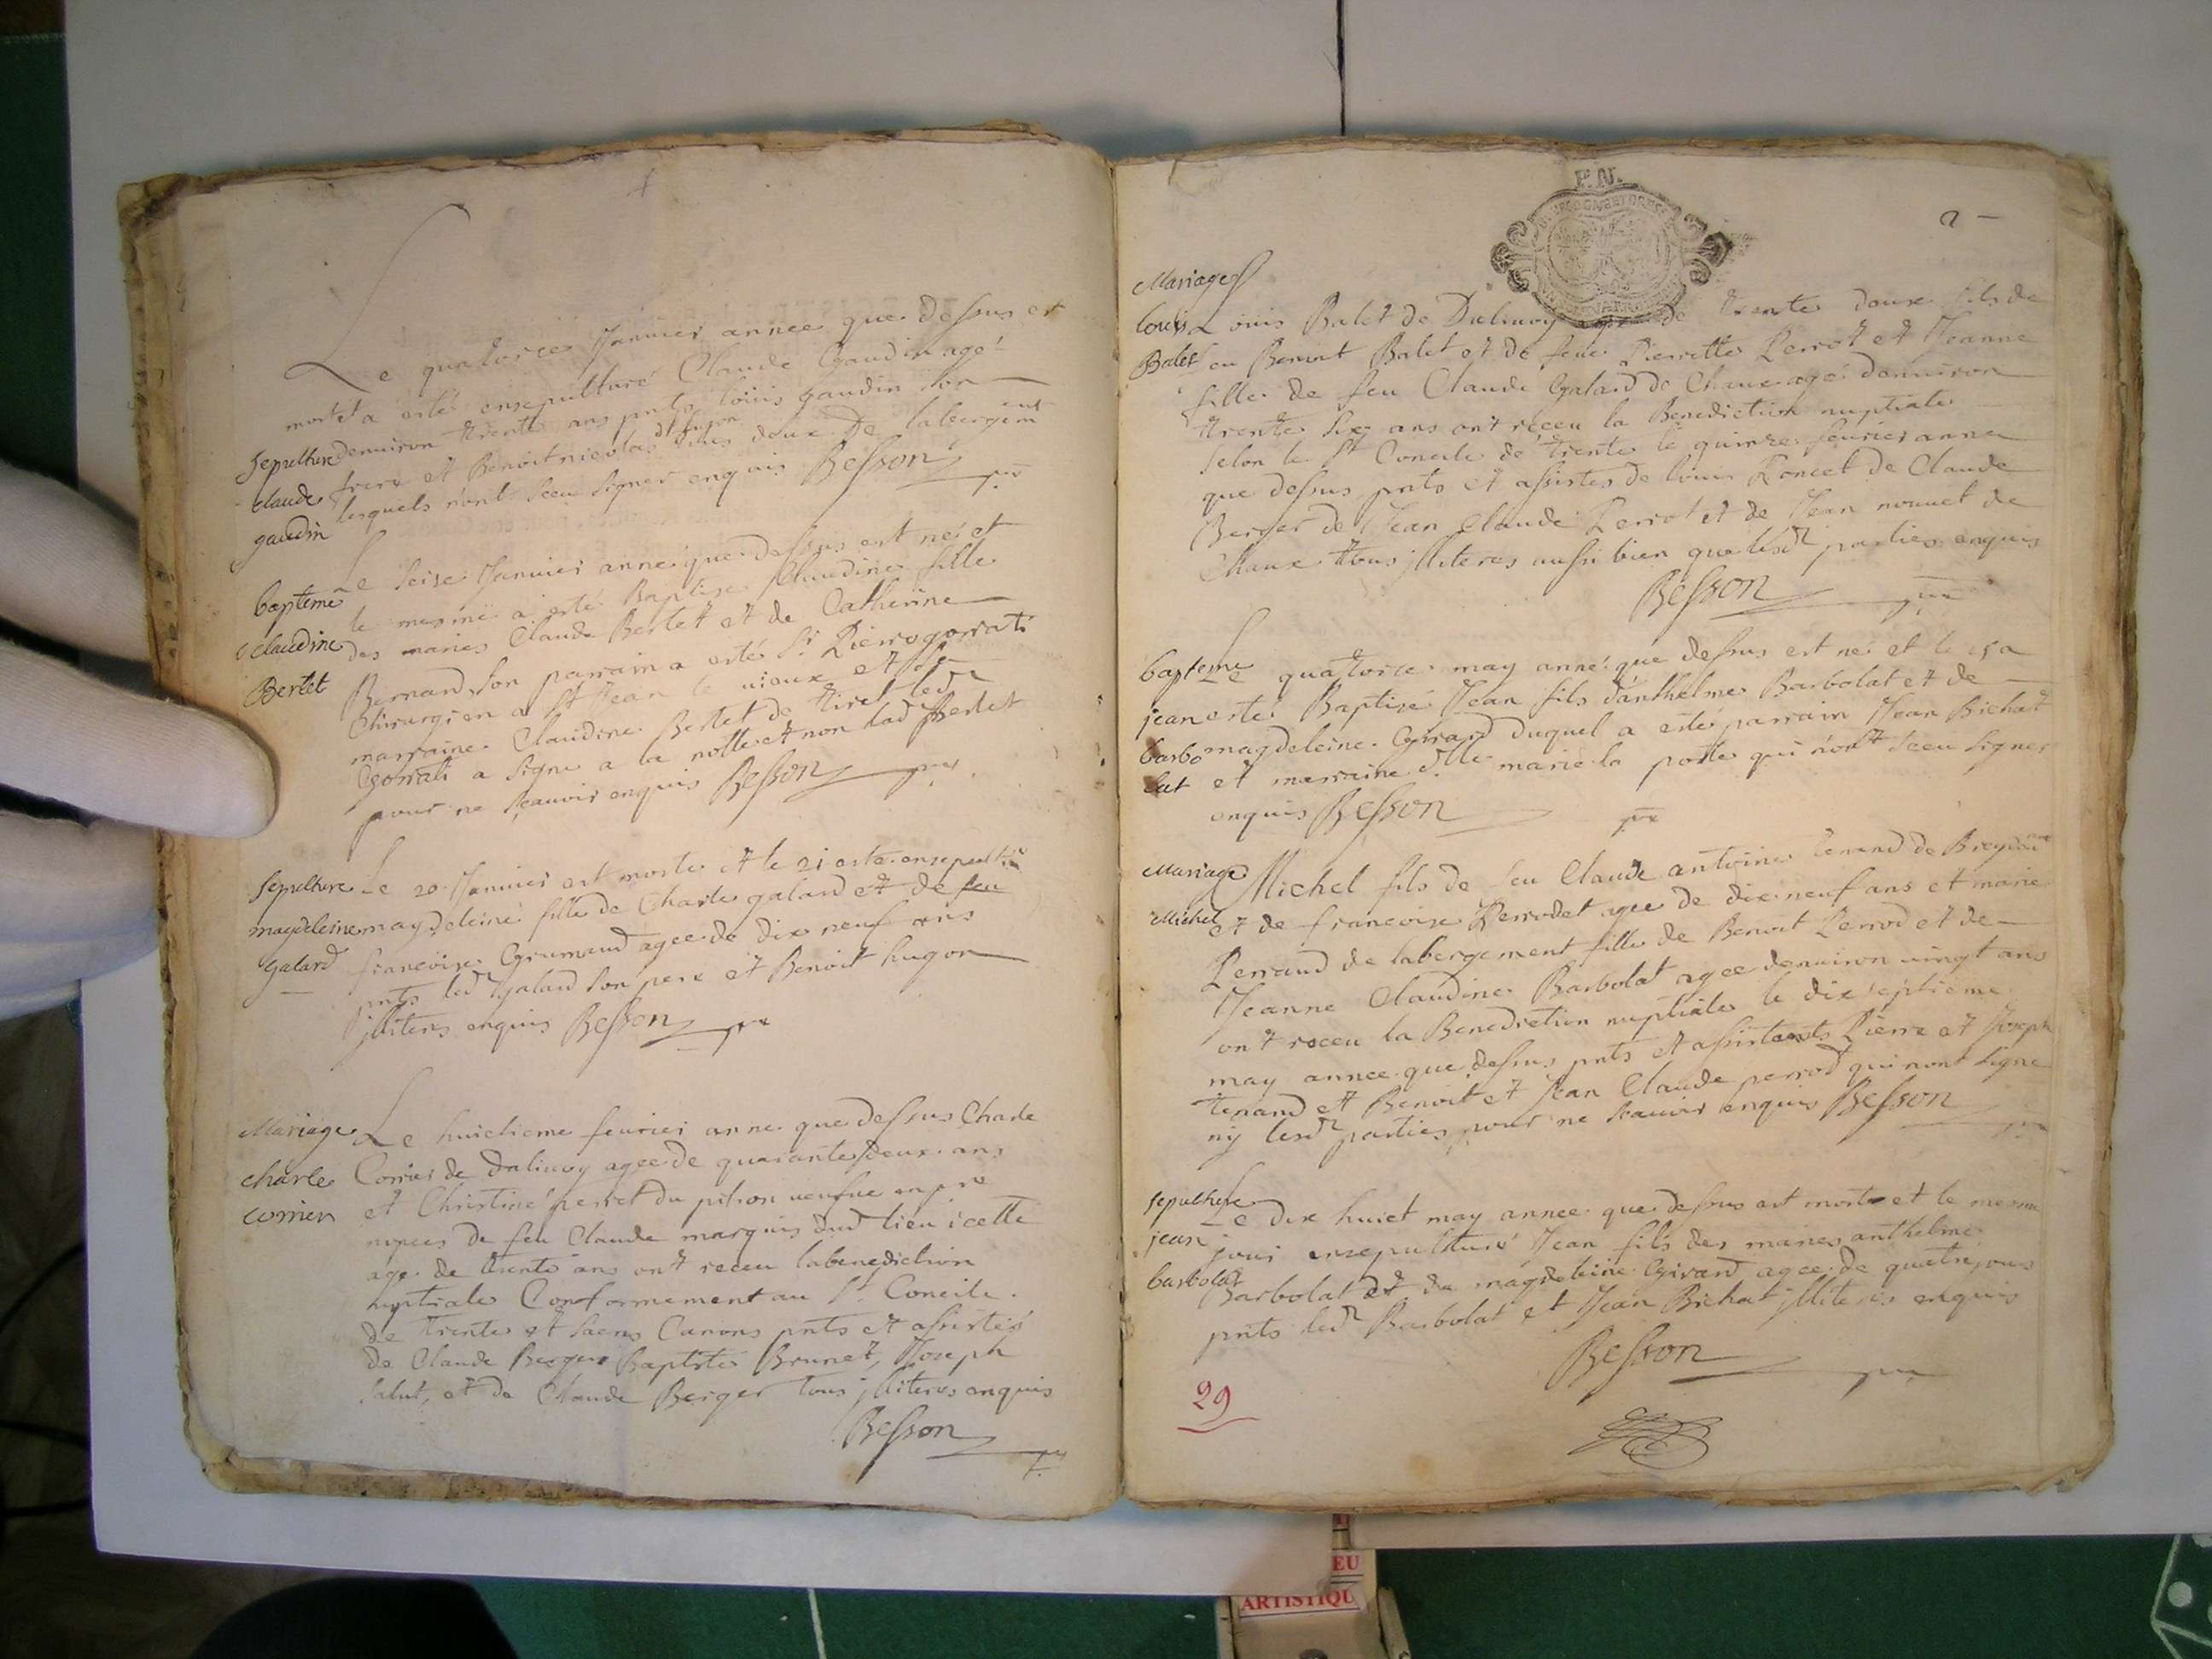 Le quatorze Januier annee que dessus est
mort et a esté ensepulturé Claude Gaudin agé
sepulture denuiron trente ans pnts loüis gaudin son
claude frere et Benoit nicolas dt hugon tous deux de labergemt
gaudin lesquels n'ont sceu signer enquis Besson
Le seise Januier anne que dessus est né et
bapteme le mesme a esté Baptise Claudine fille
claudine des maries Claude Bertet et de Catherine
Bertet Bernard, son parrain a esté Sr Pierre gorrati
Chirurgien a St Jean le uieux et
marraine Claudine Bertet de tiret ledt
Gorrati a signe a la notte et non lad Bertet
pour ne scauoir enquis Besson
sepulture Le 20 Januier est morte et le 21 esté ensepultu
magdeleine magdeleine fille de Charle galard et de feu
galard francoise Grumaud agee de dix neuf ans
pnts ledt galard son pere et Benoit hugon
jlliteres enquis Besson
Mariage Le huictieme feurier anne que dessus Charle
charle Corrier de Daliuoy agee de quarante deux ans
corrier et Christine perret du piteon ueufue en pre
nopces de feu Claude marquis dud lieu icelle
age de trente ans ont receu labenediction
nuptiale Conformement au St Concile
de trente et saens Canons pnts et assistés
de Claude Berger Baptiste Brunet, Joseph
Salut, et de Claude Berger tous jlliteres enquis
Besson
P. N.
2
Mariage
louis Louis Balet de Daliuoy de trente douxe fils de
Balet Benoit Balet et de feue Pierrette Perrot et Jeanne
fille de feu Claude Galard de Chaux agé denuiron
trente six ans ont receu la Benediction nuptiale
selon le St Concile de trente le quinze feurier anne
que dessus pnts et assistes de louis Poncet de Claude
Berger de Jean Claude Perrot et de Jean nouuet de
Chaux tous jlliteres aussi bien que lesdt parties enquis
Besson
bapteme Le quatorze may anné que dessus est né et le 15 a
jean esté Baptizé Jean fils d'anthelme Barbolat et de
barbo magdeleine Girard duquel a esté parrain Jean Bichat
lat et marraine dlle marie la poste qui n'ont sceu signer
enquis Besson
Mariage Michel fils de feu Claude antoine tenand de
Michel et de francoise Perrodet agee de dix neuf ans et marie
Perraud de labergement fille de Benoit Perrod et de
Jeanne Claudine Barbolat agee denuiron uingt ans
ont receu la Benediction nuptiale le dix septieme
may annee que dessus pnts et assistants Pierre et Joseph
tenand et Benoit et Jean Claude perrod qui nont signe
nÿ lesdt parties pour ne scauoir enquis Besson
sepulture Le dix huict may annee que dessus est morte et le mesme
jean jour ensepulturé Jean fils des maries anthelme
barbolat Barbolat et de magdeleine Girard agee de quatre jours
pnts ledt Barbolat et Jean Bichat jlliteres enquis
Besson
29
EU
ARTISTIQU